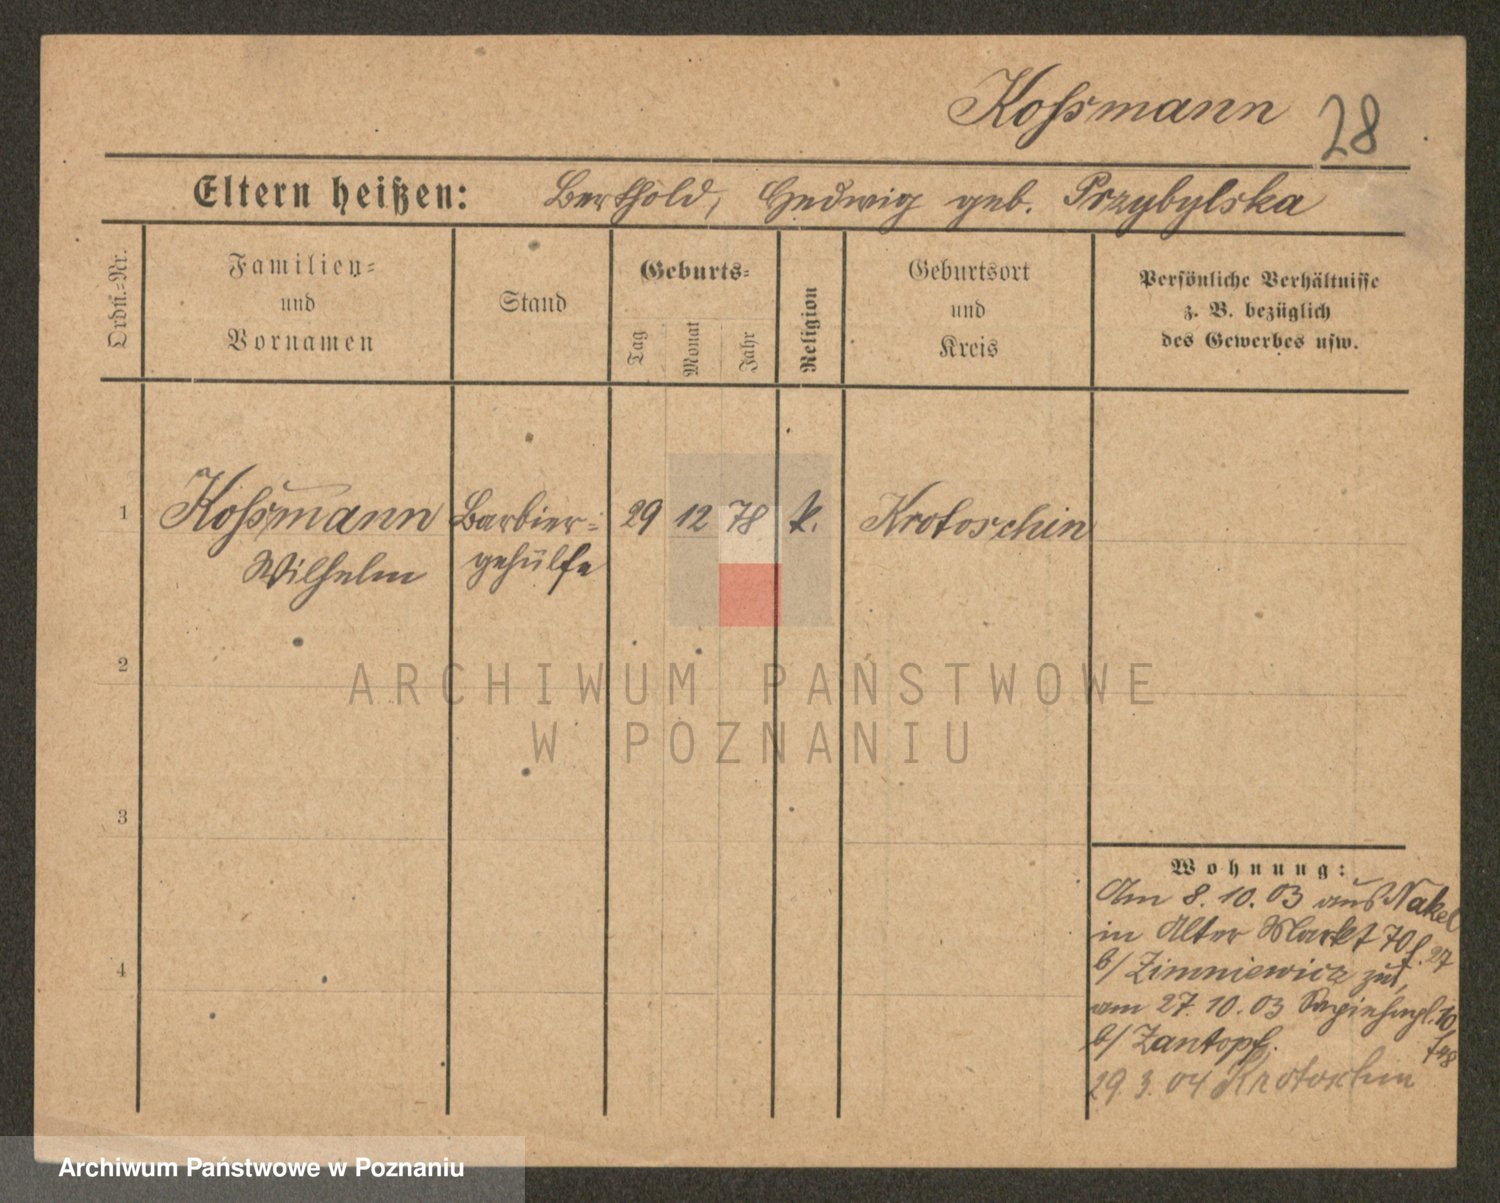 Kossmann 28
Eltern heißen: Berthold, Hedwig geb. Przybylska
Ordn.-Nr.
Familien-
und
Vornamen
Stand
Geburts-
Tag
Monat
Jahr
Religion
Geburtsort
und
Kreis
Persönliche Verhältnisse
z. B. bezüglich
des Gewerbes usw.
1 Kossmann Barbier- 29 12 78 k. Krotoschin
Wilhelm gehülfe
2
ARCHIWUM PAŃSTWOWE
W POZNANIU
3
Wohnung:
Am 8. 10. 03 aus Nakel
in Alter Markt 70 f. 27
4
b/ Zimniewicz zu,
am 27. 10. 03 Sapiehapl. 10
b/ Zantopf.
29. 3. 04 Krotoschin
Archiwum Państwowe w Poznaniu